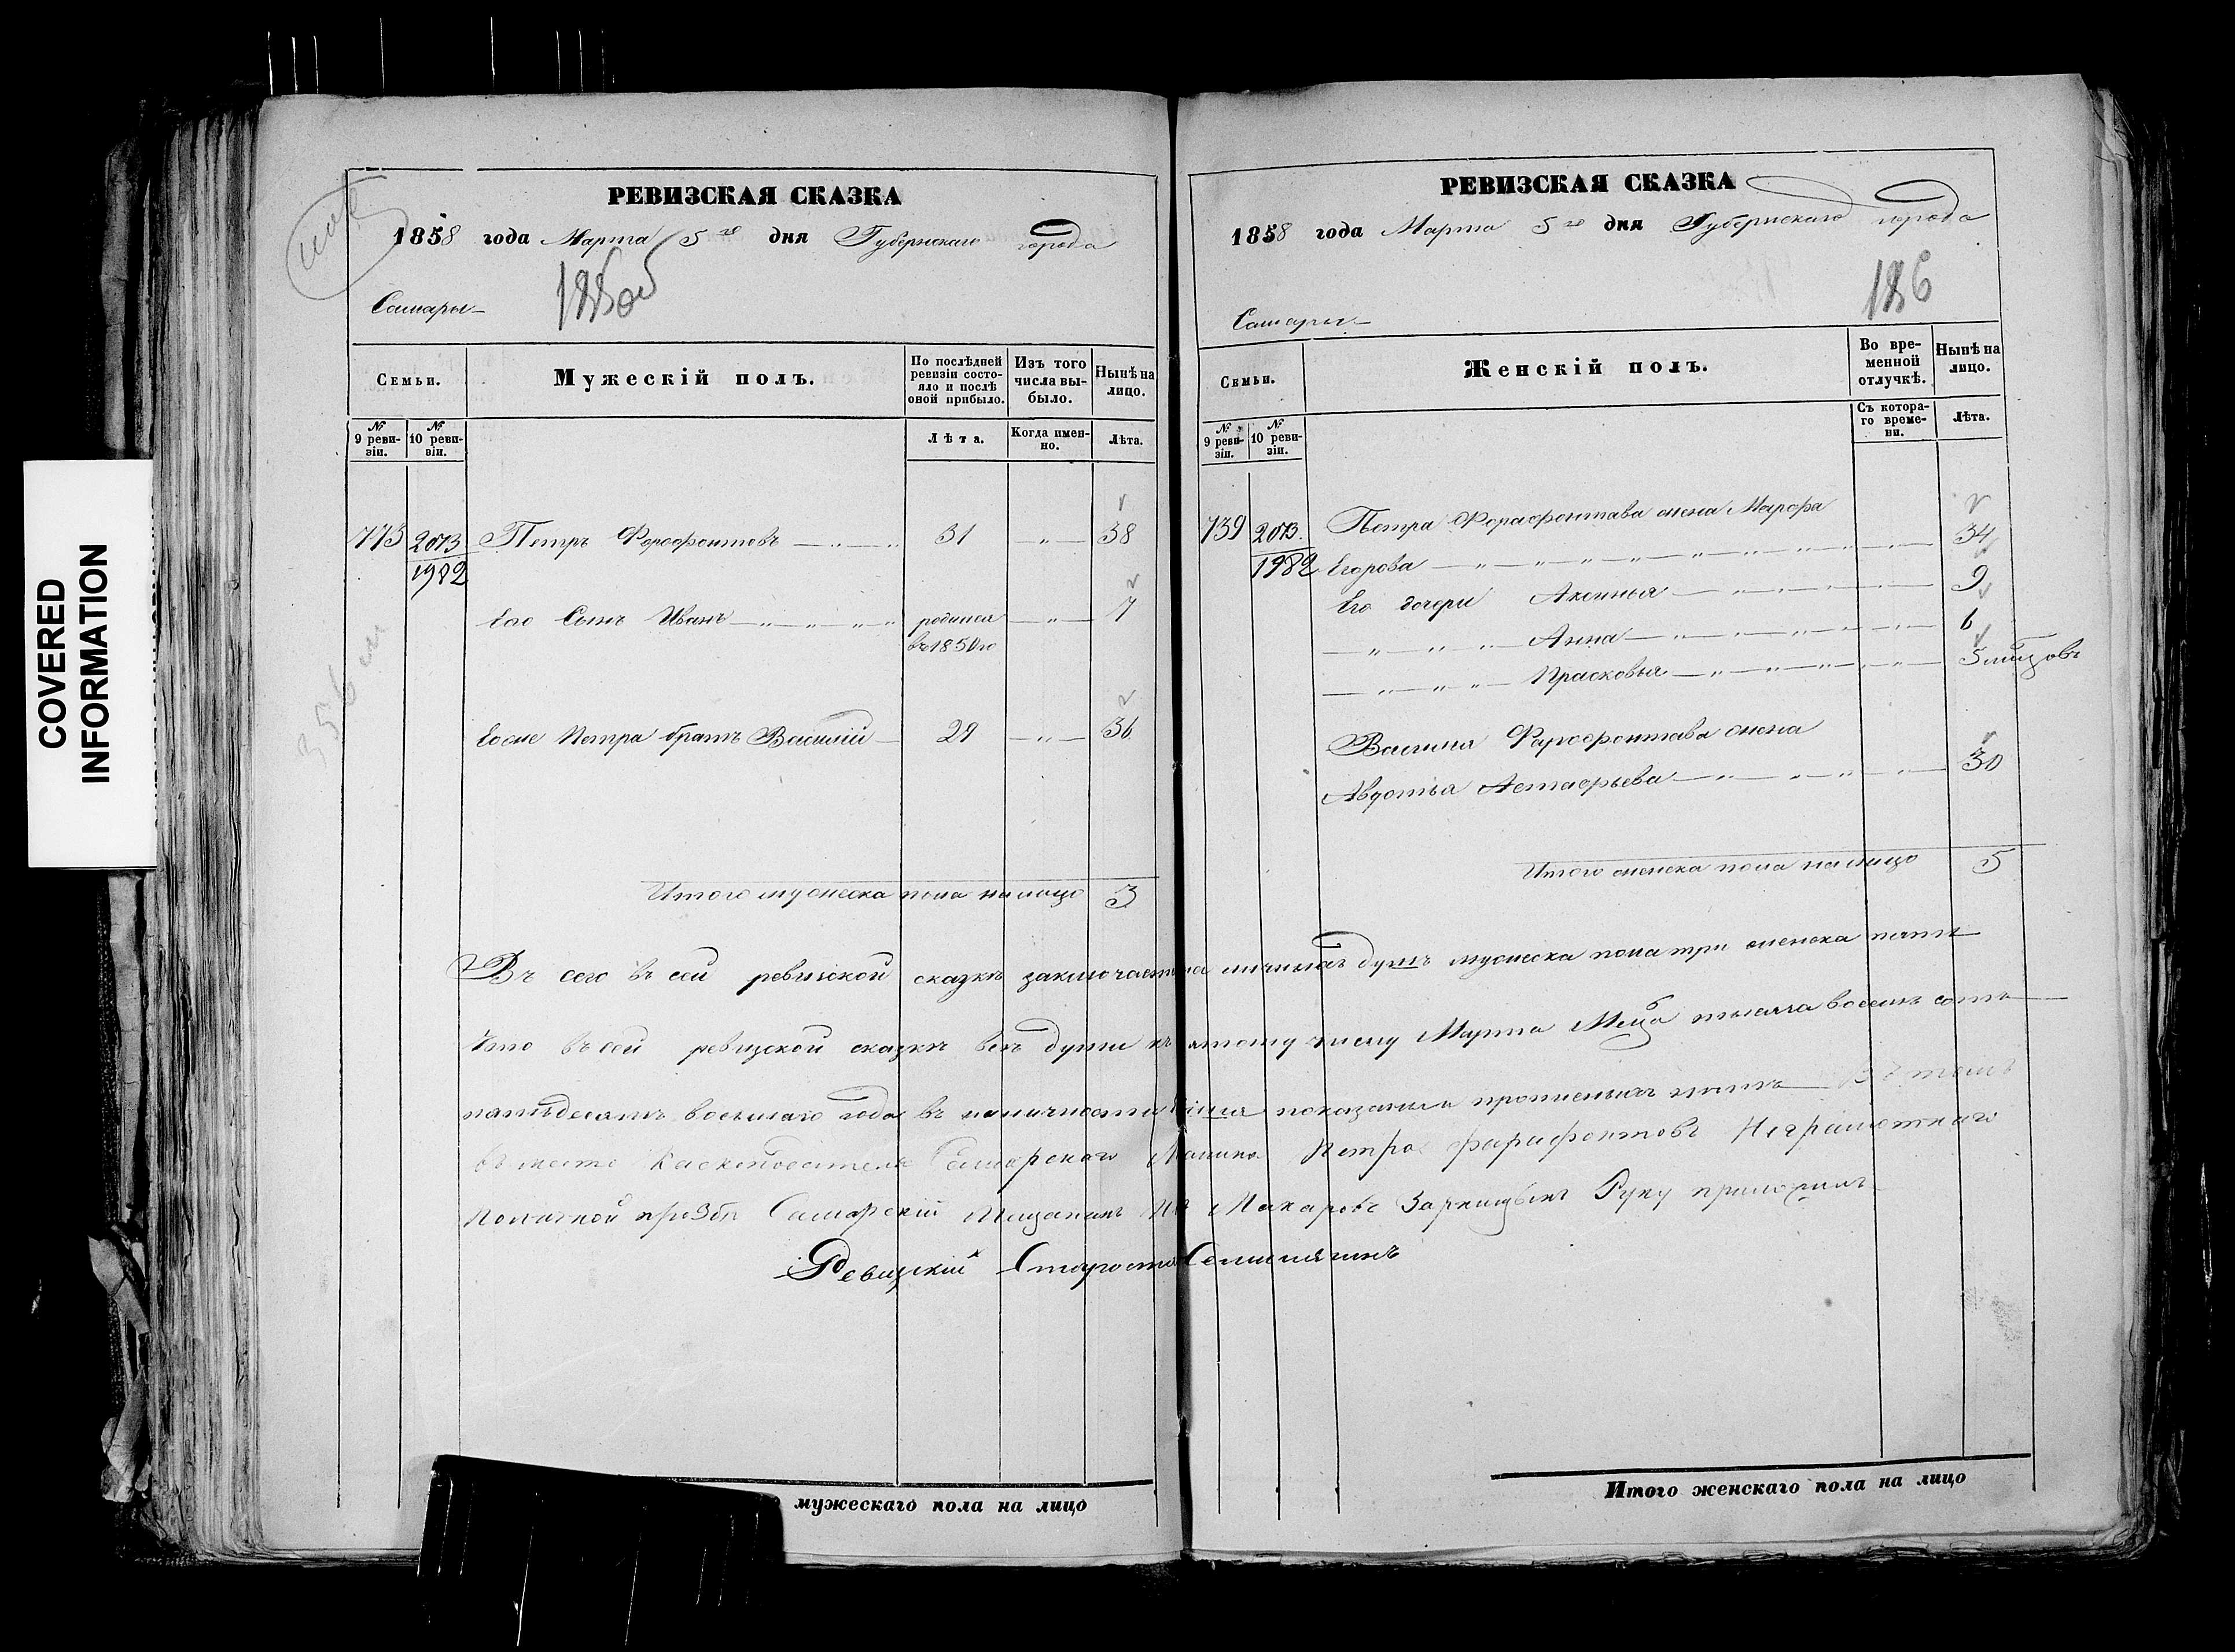 COVERED
INFORMATION
РЕВИЗСКАЯ СКАЗКА
1858 года Марта 5го дня Губернскаго города
Самары
185об
Семьи.
Мужескій полъ.
По послѣдней ревизіи состояло и послѣ оной прибыло.
Изъ того числа выбыло.
Нынѣ на лицо.
№ 9 ревизіи.
№ 10 ревизіи.
Лѣта.
Когда именно.
Лѣта.
773 2073 Петръ Форофонтовъ 31 38
1982
Его Сынъ Иванъ родился 7
въ 1850 го
Егоже Петра братъ Василій 29 36
Итого мужеска пола на лицо 3
мужескаго пола на лицо
РЕВИЗСКАЯ СКАЗКА
1858 года Марта 5го дня Губернскаго города
Самары
186
Семьи.
Женскій полъ.
Во временной отлучкѣ.
Нынѣ на лицо.
№ 9 ревизіи.
№ 10 ревизіи.
Съ котораго времени.
Лѣта.
739 2073 Петра Форофонтава жена Марфа
1982 Егорова 34
Его дочери Аксинья 9
Анна 6
Прасковья 5 мцовъ
Василия Фарофонтава жена
Авдотья Астафьева 30
Итого женска пола на лицо 5
Въ сего въ сей ревизской сказкѣ заключается личныхъ душъ мужеска пола три женска пять
Что въ сей ревизской сказкѣ всѣ души къ пятому числу Марта Мца тысяча восемь сотъ
пятьдесятъ восьмаго года въ наличности показаны и прописныхъ нѣтъ Въ томъ
въ место Самарского Петра Фарафонтовъ Неграмотнаго
по личной прозбѣ Самарский Мещанинъ Макаровъ Руку приложилъ
Ревизкий Староста
Итого женскаго пола на лицо